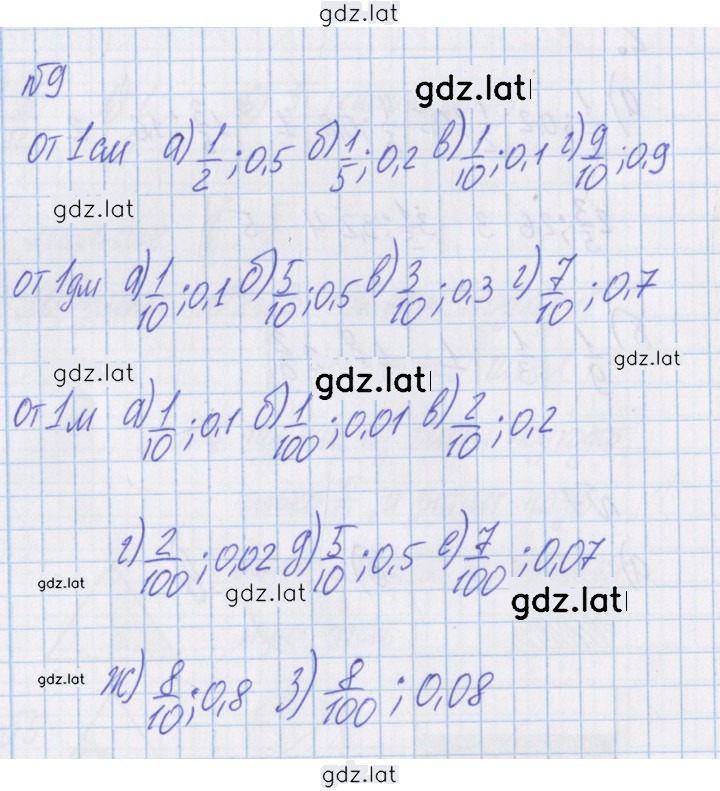 gdz.lat
№9
gdz.lat
от 1см а) 1/2; 0,5 б) 1/5; 0,2 в) 1/10; 0,1 г) 9/10; 0,9
gdz.lat
от 1дм а) 1/10; 0,1 б) 5/10; 0,5 в) 3/10; 0,3 г) 7/10; 0,7
gdz.lat
gdz.lat gdz.lat
от 1м а) 1/10; 0,1 б) 1/100; 0,01 в) 2/10; 0,2
г) 2/100; 0,02 д) 5/10; 0,5 е) 7/100; 0,07
gdz.lat gdz.lat gdz.lat
ж) 8/10; 0,8 з) 8/100; 0,08
gdz.lat
gdz.lat